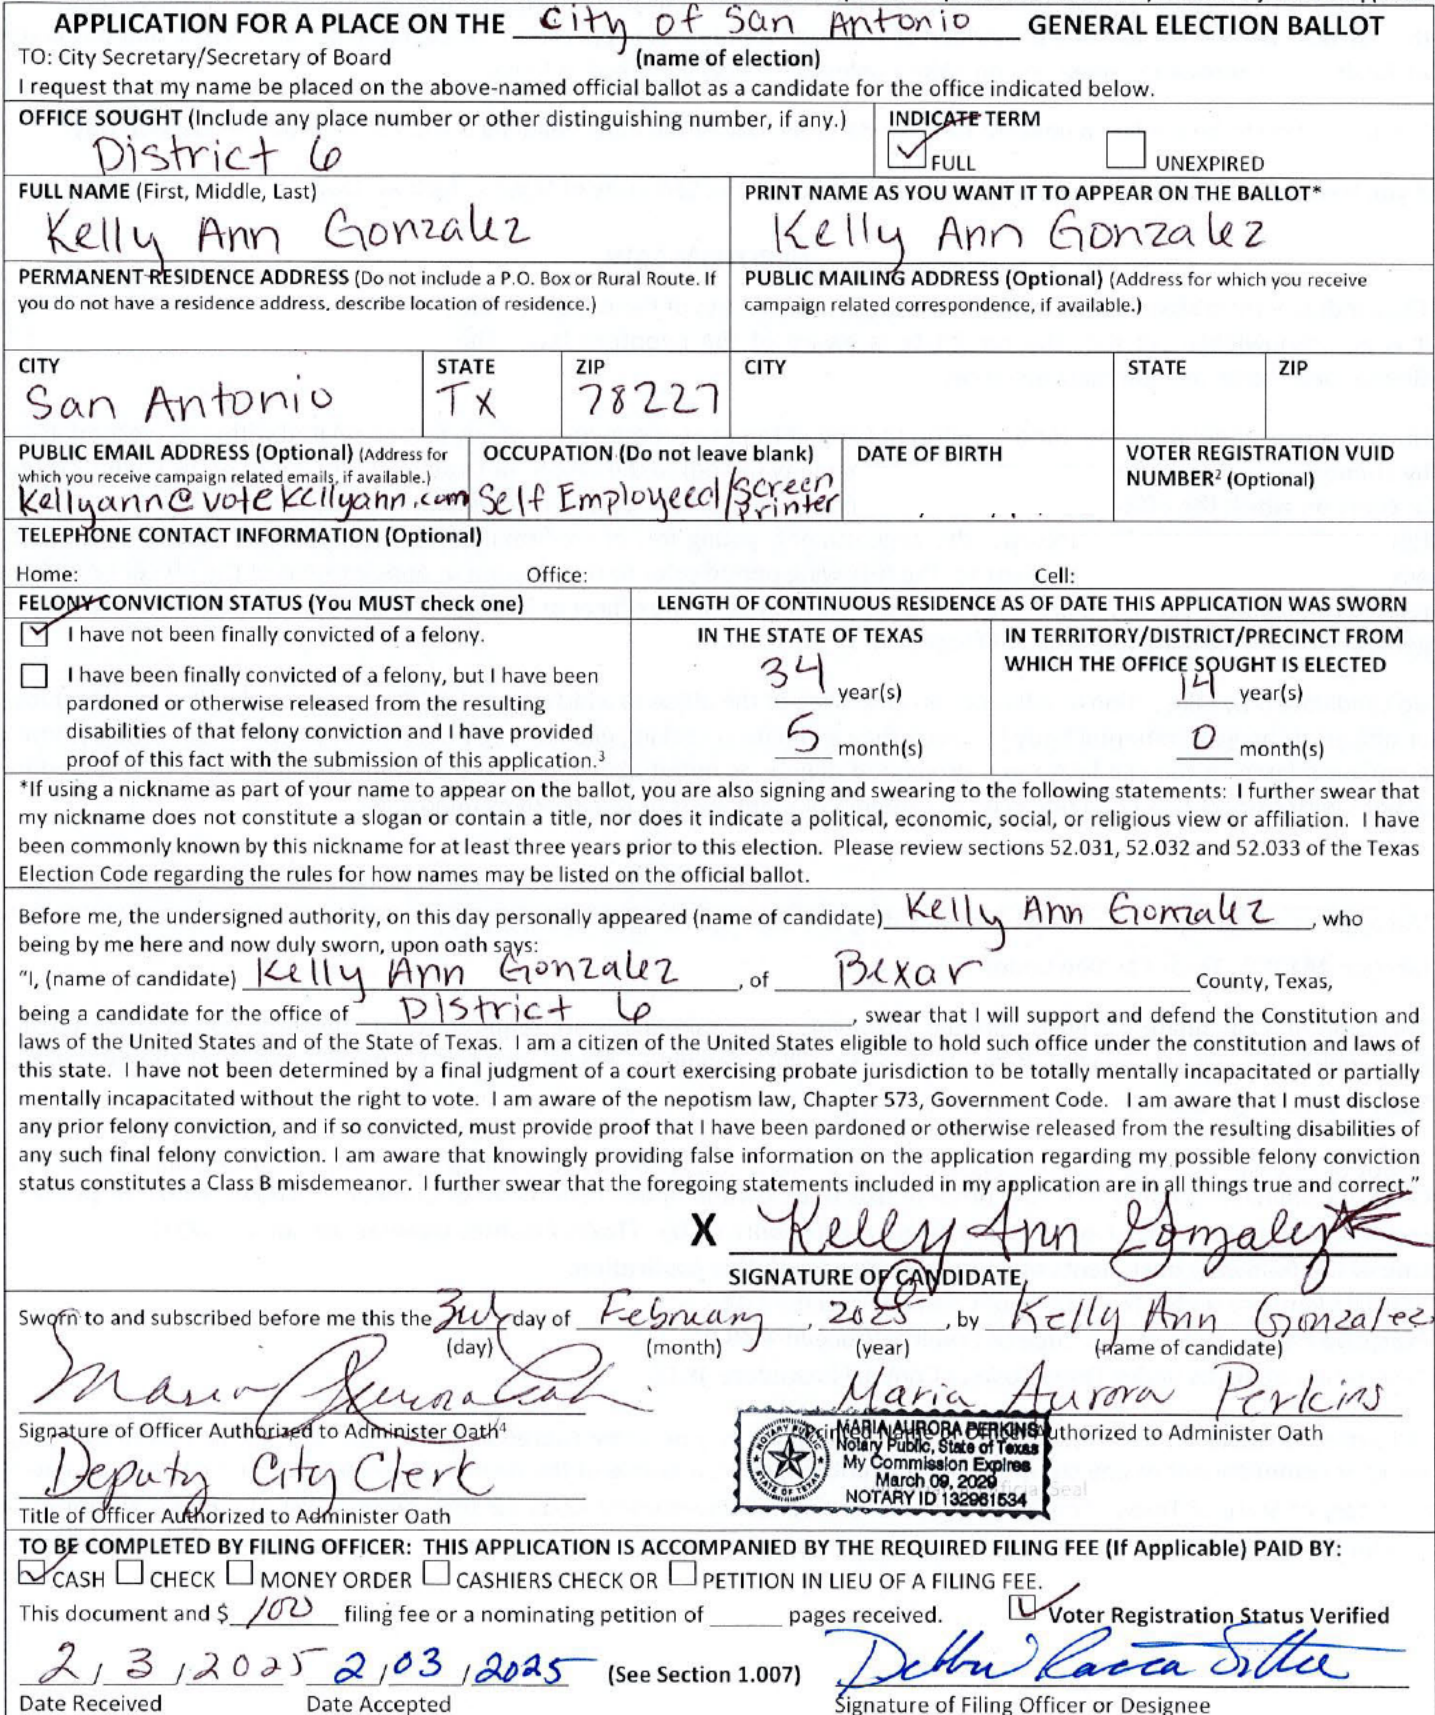 APPLICATION FOR A PLACE ON THE City of San Antonio GENERAL ELECTION BALLOT
TO: City Secretary/Secretary of Board (name of election)
I request that my name be placed on the above-named official ballot as a candidate for the office indicated below.
OFFICE SOUGHT (Include any place number or other distinguishing number, if any.)
District 6
INDICATE TERM
✓ FULL UNEXPIRED
FULL NAME (First, Middle, Last)
Kelly Ann Gonzalez
PRINT NAME AS YOU WANT IT TO APPEAR ON THE BALLOT*
Kelly Ann Gonzalez
PERMANENT RESIDENCE ADDRESS (Do not include a P.O. Box or Rural Route. If
you do not have a residence address, describe location of residence.)
PUBLIC MAILING ADDRESS (Optional) (Address for which you receive
campaign related correspondence, if available.)
CITY STATE ZIP CITY STATE ZIP
San Antonio Tx 78227
PUBLIC EMAIL ADDRESS (Optional) (Address for
which you receive campaign related emails, if available.)
kellyann@votekellyann.com
OCCUPATION (Do not leave blank)
Self Employeed/Screen
Printer
DATE OF BIRTH
VOTER REGISTRATION VUID
NUMBER² (Optional)
TELEPHONE CONTACT INFORMATION (Optional)
Home: Office: Cell:
FELONY CONVICTION STATUS (You MUST check one)
✓ I have not been finally convicted of a felony.
I have been finally convicted of a felony, but I have been
pardoned or otherwise released from the resulting
disabilities of that felony conviction and I have provided
proof of this fact with the submission of this application.³
LENGTH OF CONTINUOUS RESIDENCE AS OF DATE THIS APPLICATION WAS SWORN
IN THE STATE OF TEXAS
34 year(s)
5 month(s)
IN TERRITORY/DISTRICT/PRECINCT FROM
WHICH THE OFFICE SOUGHT IS ELECTED
14 year(s)
0 month(s)
*If using a nickname as part of your name to appear on the ballot, you are also signing and swearing to the following statements: I further swear that
my nickname does not constitute a slogan or contain a title, nor does it indicate a political, economic, social, or religious view or affiliation. I have
been commonly known by this nickname for at least three years prior to this election. Please review sections 52.031, 52.032 and 52.033 of the Texas
Election Code regarding the rules for how names may be listed on the official ballot.
Before me, the undersigned authority, on this day personally appeared (name of candidate) Kelly Ann Gonzalez, who
being by me here and now duly sworn, upon oath says:
"I, (name of candidate) Kelly Ann Gonzalez, of Bexar County, Texas,
being a candidate for the office of District 6, swear that I will support and defend the Constitution and
laws of the United States and of the State of Texas. I am a citizen of the United States eligible to hold such office under the constitution and laws of
this state. I have not been determined by a final judgment of a court exercising probate jurisdiction to be totally mentally incapacitated or partially
mentally incapacitated without the right to vote. I am aware of the nepotism law, Chapter 573, Government Code. I am aware that I must disclose
any prior felony conviction, and if so convicted, must provide proof that I have been pardoned or otherwise released from the resulting disabilities of
any such final felony conviction. I am aware that knowingly providing false information on the application regarding my possible felony conviction
status constitutes a Class B misdemeanor. I further swear that the foregoing statements included in my application are in all things true and correct."
X Kelly Ann Gonzalez
SIGNATURE OF CANDIDATE
Sworn to and subscribed before me this the 3rd day of February, 2025, by Kelly Ann Gonzalez
(day) (month) (year) (name of candidate)
Maria Aurora Perkins
Signature of Officer Authorized to Administer Oath⁴
Printed Name of Officer Authorized to Administer Oath
Deputy City Clerk
Title of Officer Authorized to Administer Oath
NOTARY PUBLIC
STATE OF TEXAS
MARIA AURORA PERKINS
Notary Public, State of Texas
My Commission Expires
March 09, 2029
NOTARY ID 132961534
Seal
TO BE COMPLETED BY FILING OFFICER: THIS APPLICATION IS ACCOMPANIED BY THE REQUIRED FILING FEE (If Applicable) PAID BY:
✓ CASH CHECK MONEY ORDER CASHIERS CHECK OR PETITION IN LIEU OF A FILING FEE.
This document and $ 100 filing fee or a nominating petition of pages received. ✓ Voter Registration Status Verified
2/3/2025 2/03/2025 (See Section 1.007)
Date Received Date Accepted Signature of Filing Officer or Designee